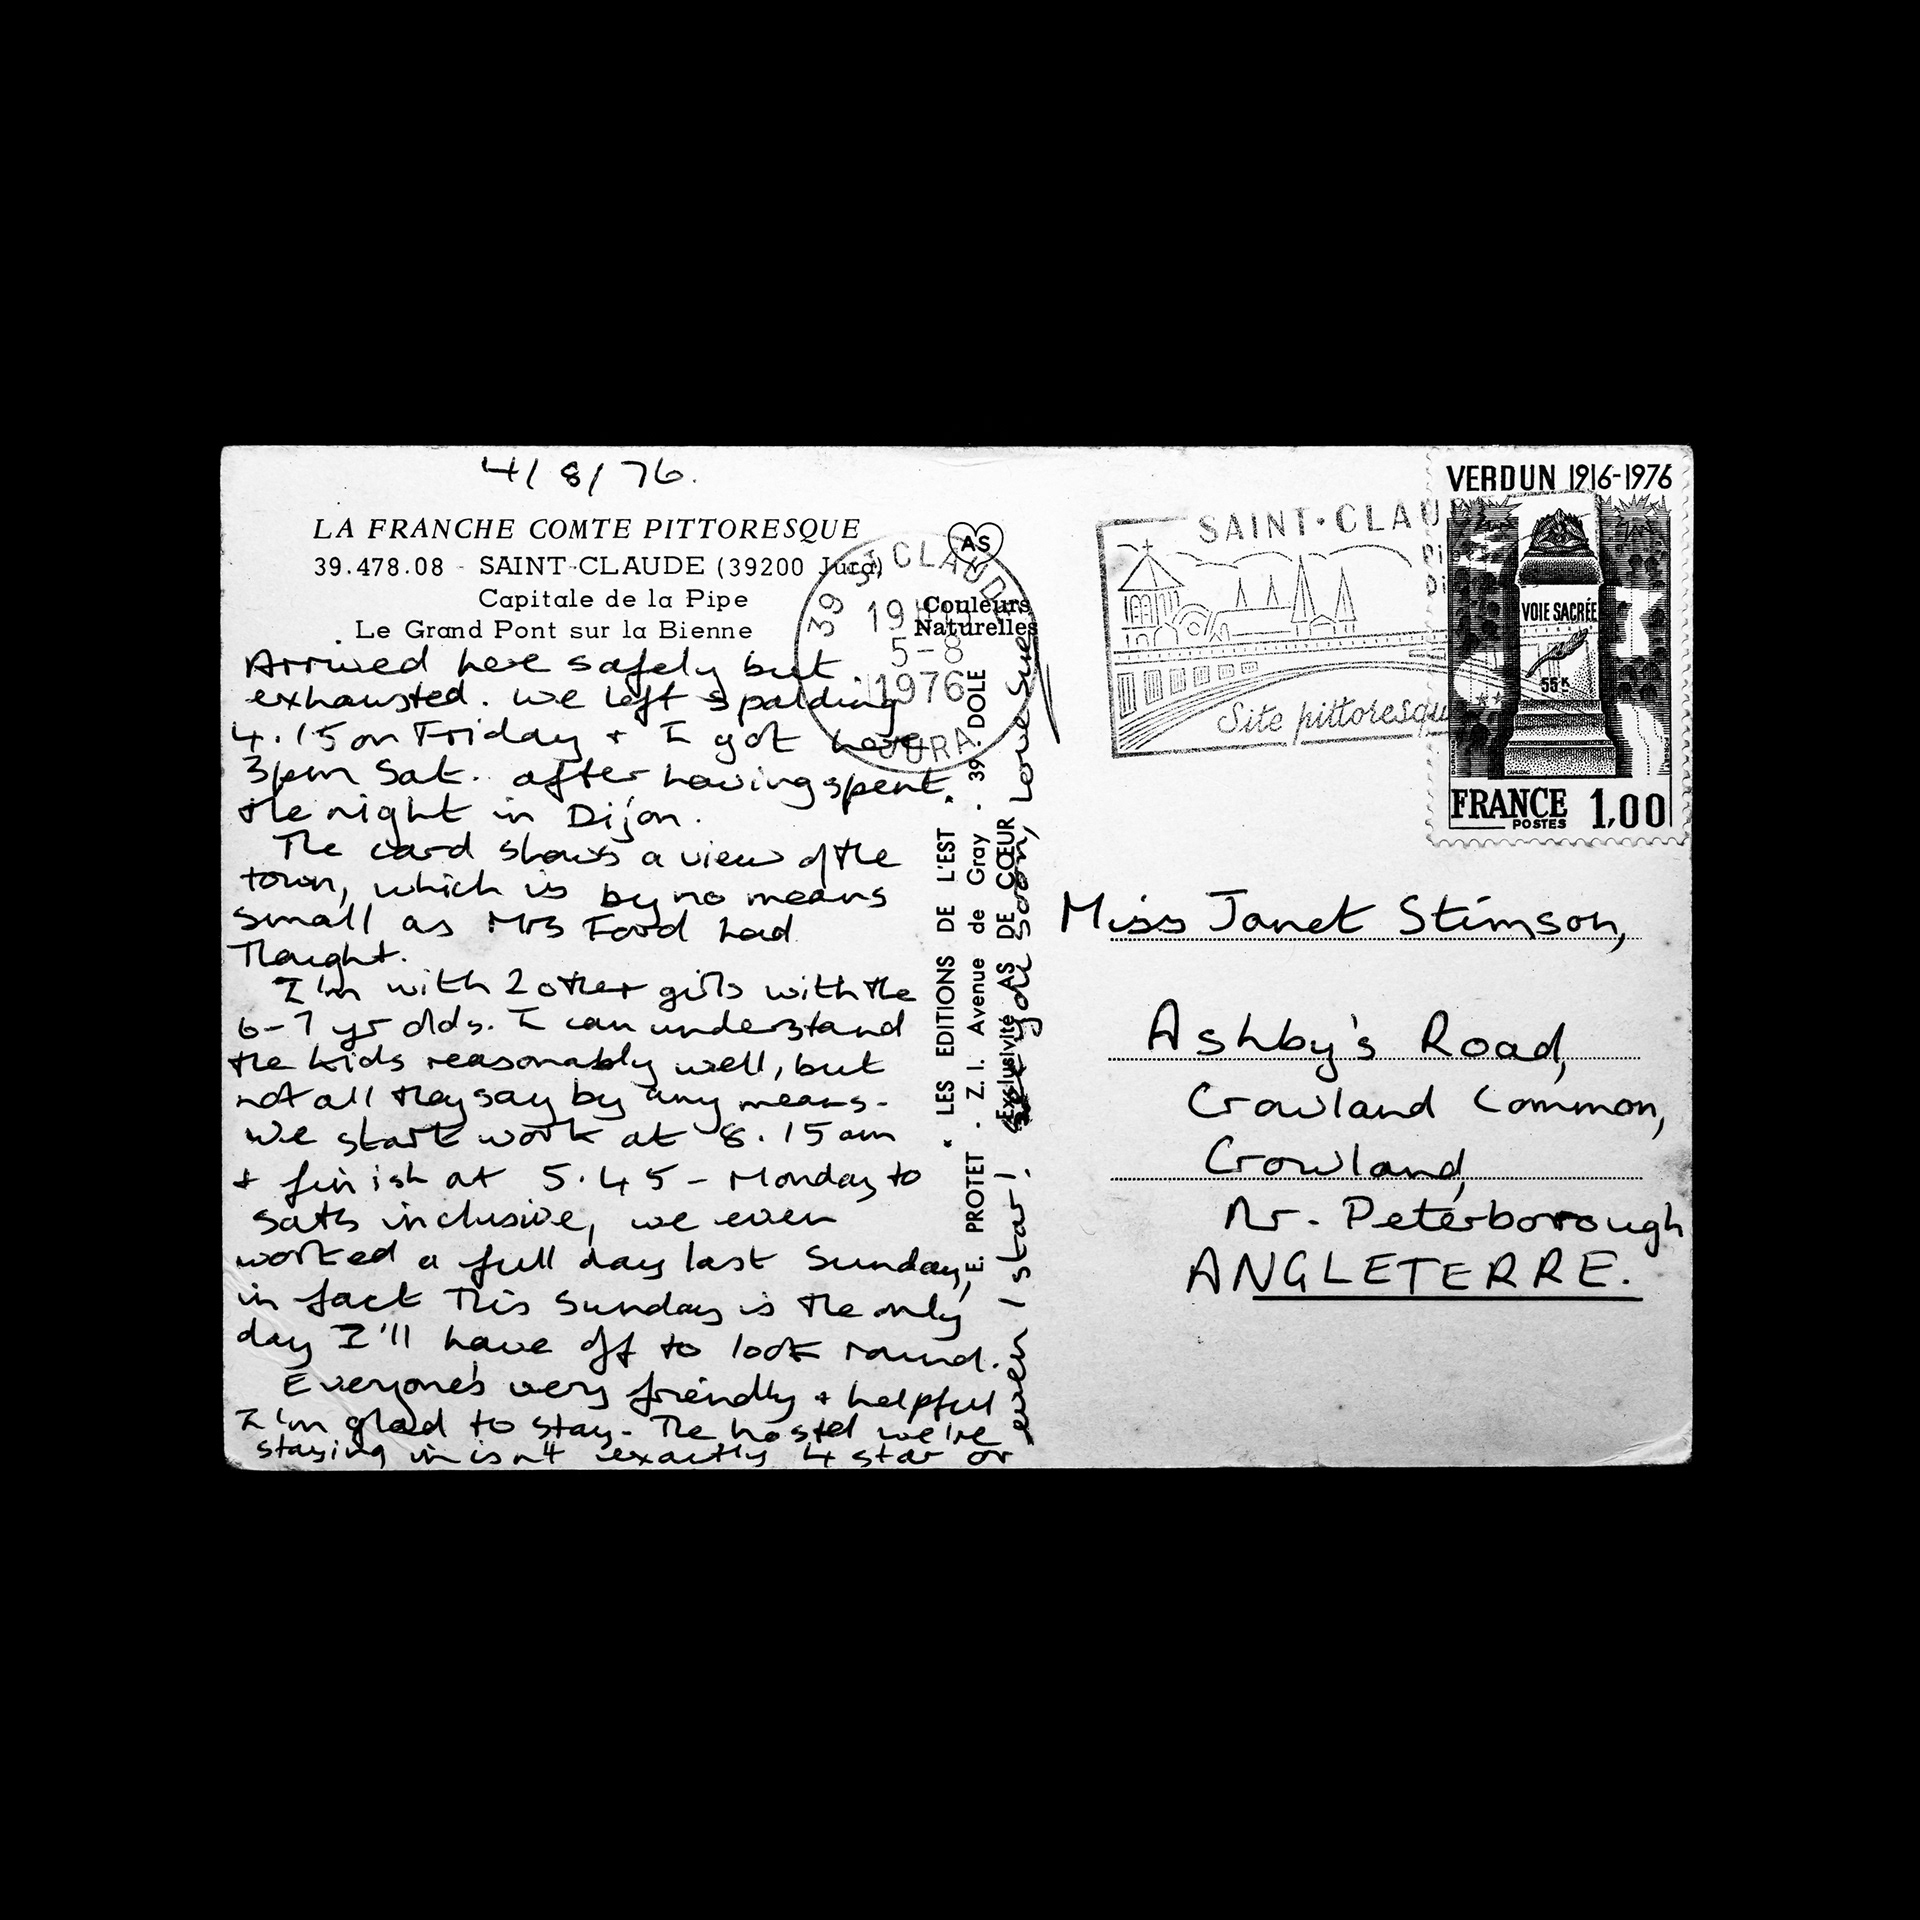 4/8/76.
LA FRANCHE COMTE PITTORESQUE
39.478.08 - SAINT-CLAUDE (39200 Jura)
Capitale de la Pipe
Le Grand Pont sur la Bienne
Arrived here safely but
exhausted. We left Spalding
4.15 on Friday + I got here
3pm Sat. after having spent
the night in Dijon.
The card shows a view of the
town, which is by no means
small as Mrs Ford had
thought.
I'm with 2 other girls with the
6-7 yr olds. I can understand
the kids reasonably well, but
not all they say by any means.
We start work at 8.15am
+ finish at 5.45 - Monday to
Sats inclusive, we even
worked a full day last Sunday,
in fact this Sunday is the only
day I'll have off to look round.
Everyone's very friendly + helpful
I'm glad to stay. The hostel we're
staying in isn't exactly 4 star or
even 1 star!
See you soon, Love Sue
AS
Couleurs
Naturelles
• LES EDITIONS DE L'EST •
E. PROTET . Z.I. Avenue de Gray . 39. DOLE
Exclusivité AS DE CŒUR
39 ST CLAUDE
19H
5-8
1976
JURA
SAINT-CLAU
Site pittoresqu
VERDUN 1916-1976
VOIE SACRÉE
55K
FRANCE
POSTES
1,00
Miss Janet Stimson,
Ashby's Road,
Crowland Common,
Crowland,
Nr. Peterborough
ANGLETERRE.